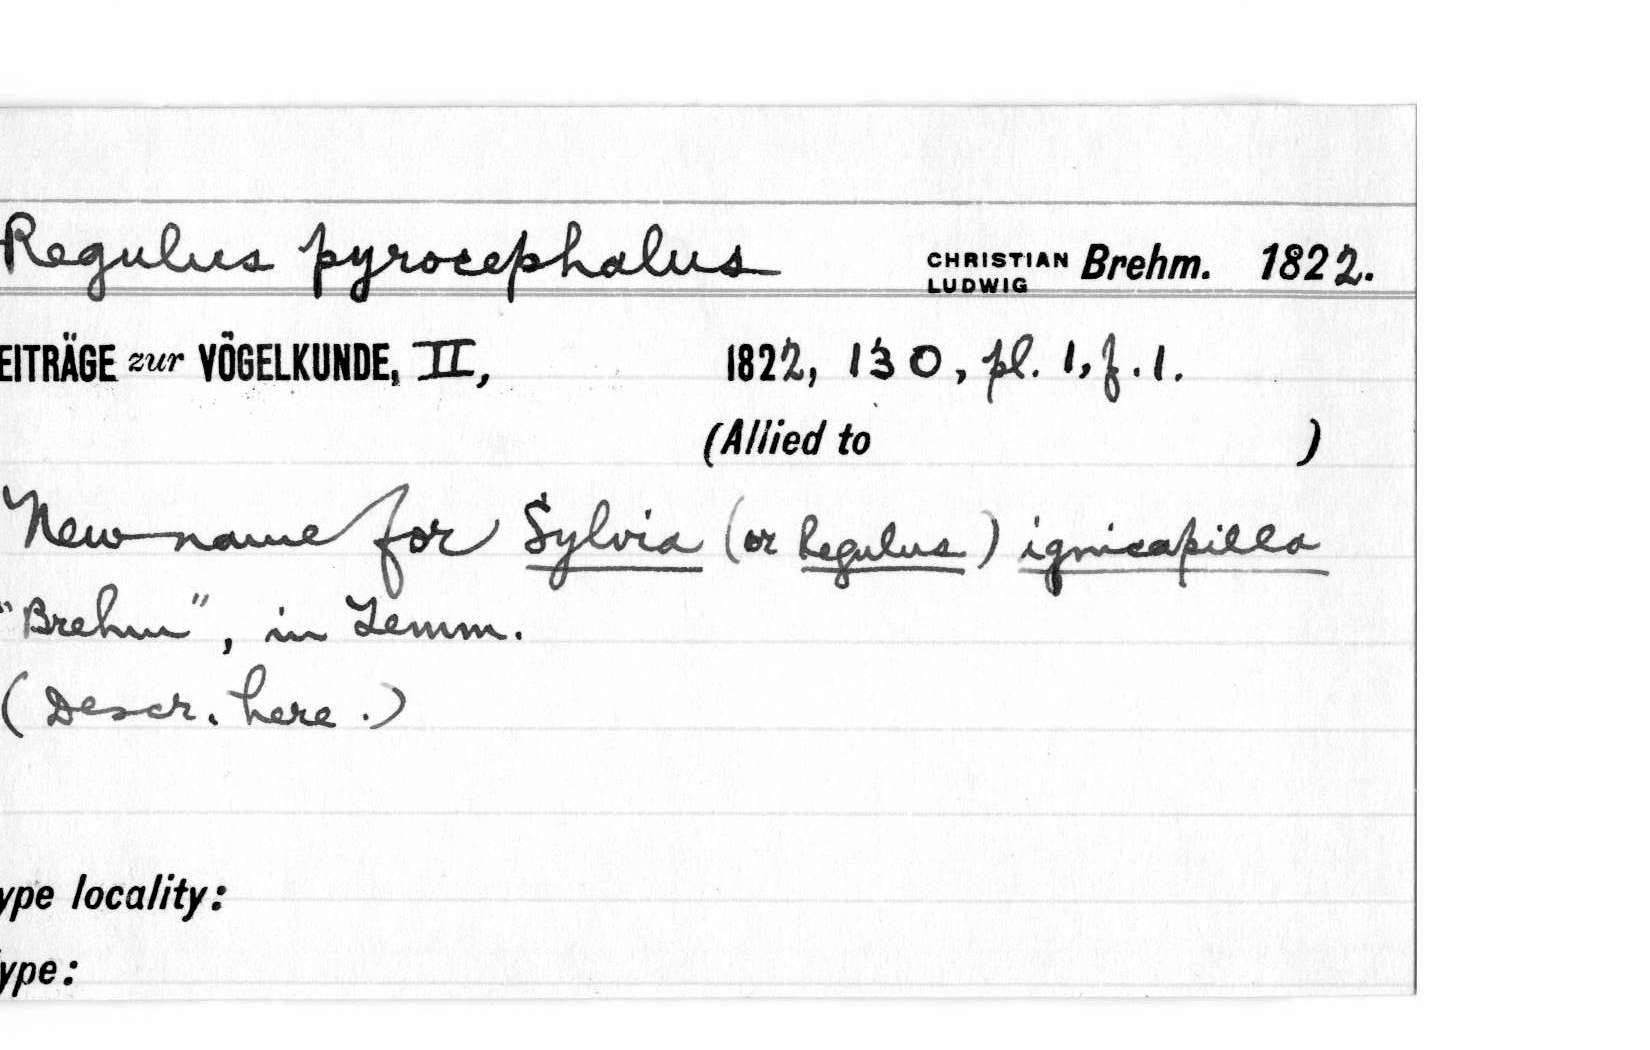 Regulus pyrocephalus CHRISTIAN LUDWIG Brehm. 1822.
EITRÄGE zur VÖGELKUNDE, II, 1822, 130, pl. 1, f. 1.
(Allied to )
New name for Sylvia (or Regulus) ignicapilla
"Brehm", in Temm.
(Descr. here.)
ype locality:
ype: